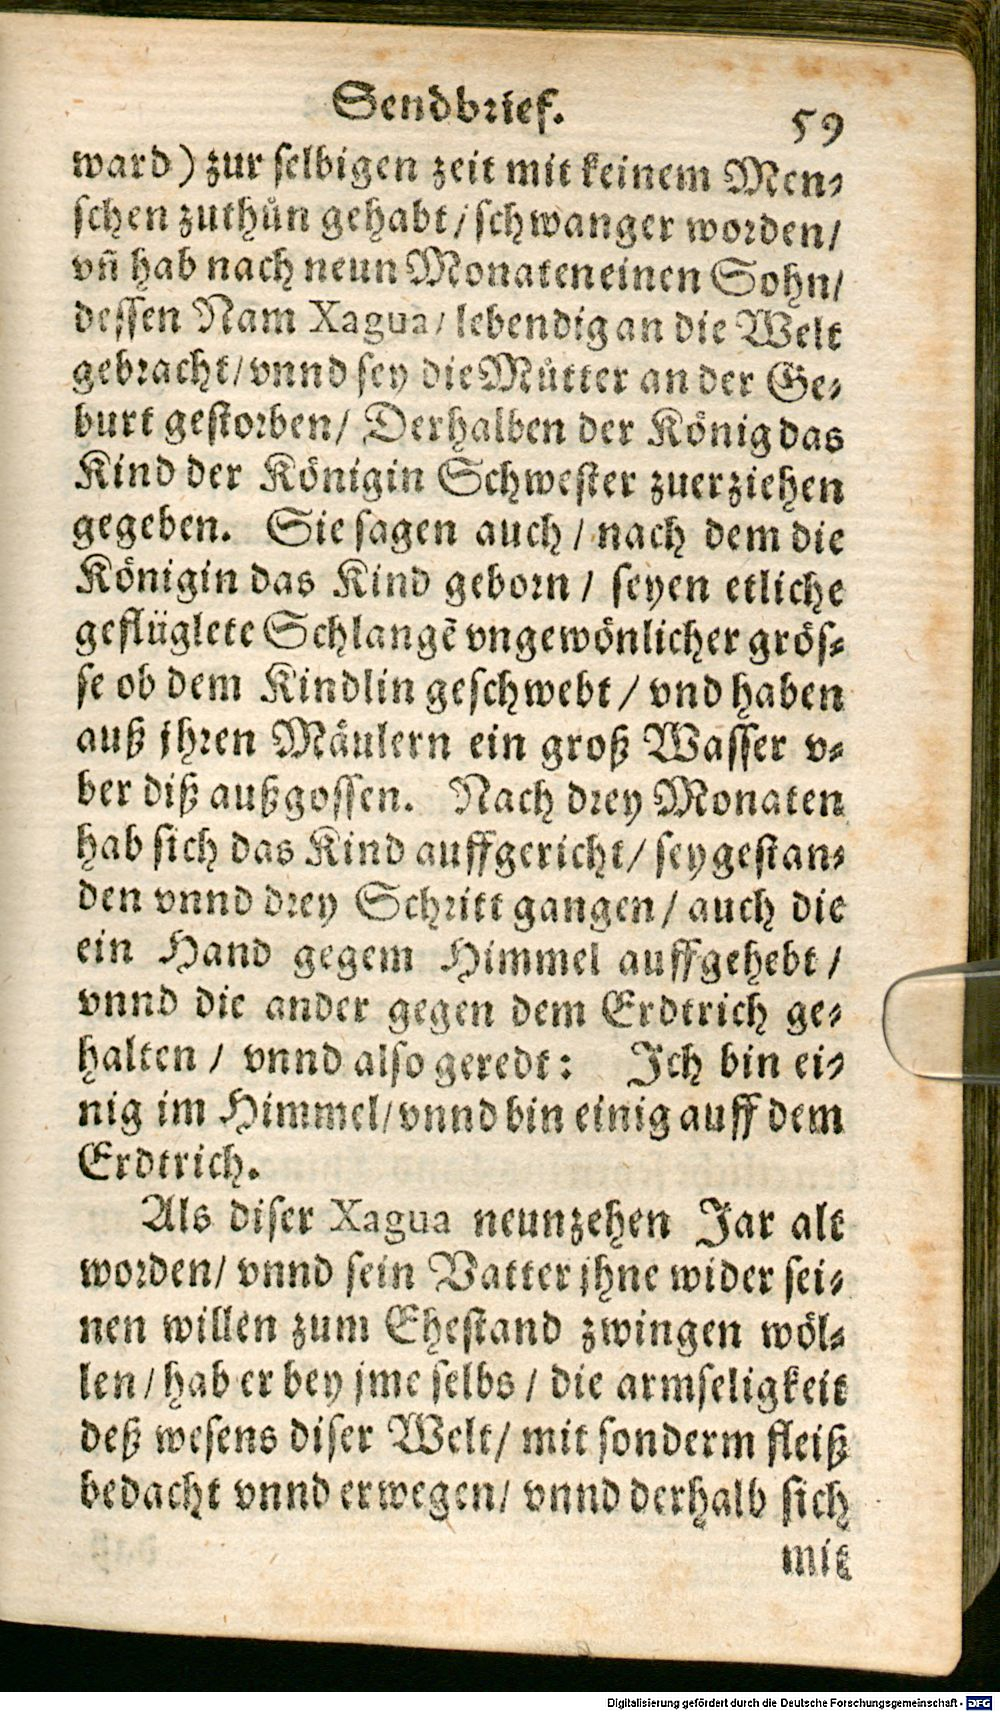 Sendbrief.
59
ward) zur selbigen zeit mit keinem Men-
schen zuthůn gehabt / schwanger worden /
vñ hab nach neun Monaten einen Sohn /
dessen Nam Xagua / lebendig an die Welt
gebracht / vnnd sey die Můtter an der Ge-
burt gestorben / Derhalben der König das
Kind der Königin Schwester zuerziehen
gegeben. Sie sagen auch / nach dem die
Königin das Kind geborn / seyen etliche
geflüglete Schlangē vngewönlicher grös-
se ob dem Kindlin geschwebt / vnd haben
auß jhren Mäulern ein groß Wasser v-
ber diß außgossen. Nach drey Monaten
hab sich das Kind auffgericht / sey gestan-
den vnnd drey Schritt gangen / auch die
ein Hand gegem Himmel auffgehebt /
vnnd die ander gegen dem Erdtrich ge-
halten / vnnd also geredt: Ich bin ei-
nig im Himmel / vnnd bin einig auff dem
Erdtrich.
Als diser Xagua neunzehen Jar alt
worden / vnnd sein Vatter jhne wider sei-
nen willen zum Ehestand zwingen wöl-
len / hab er bey jme selbs / die armseligkeit
deß wesens diser Welt / mit sonderm fleiß
bedacht vnnd erwegen / vnnd derhalb sich
mit
Digitalisierung gefördert durch die Deutsche Forschungsgemeinschaft - DFG